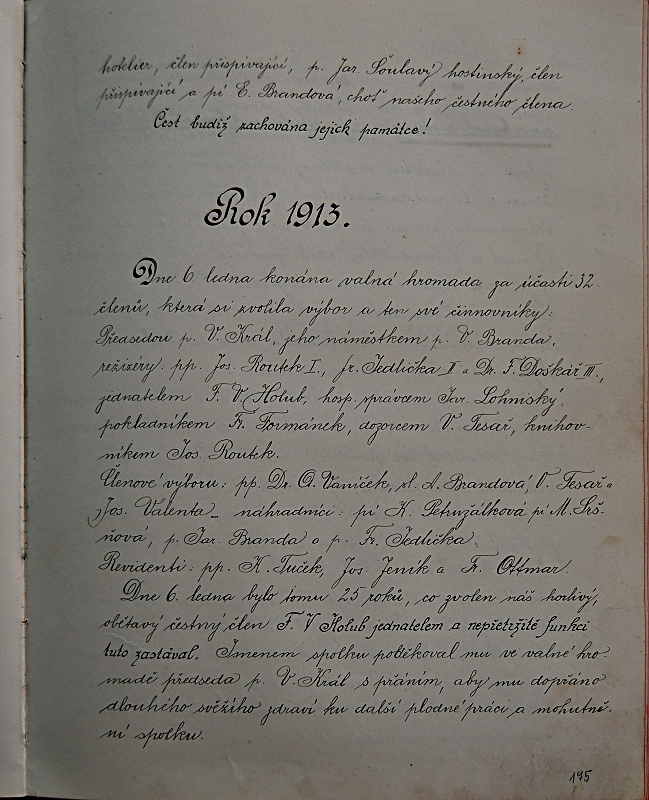 hotelier, člen přispívající, p. Jar. Šoulavý hostinský, člen
přispívající a pí E. Brandová, choť našeho čestného člena.
Čest budiž zachována jejich památce!
Rok 1913.
Dne 6. ledna konána valná hromada za účasti 32
členů, která si zvolila výbor a ten své činnovníky:
Předsedou p. V. Král, jeho náměstkem p. V. Branda,
režizéry: pp. Jos. Routek I., fr. Jedlička II a Dr. F. Doškář III.,
jednatelem F. V. Holub, hosp. správcem Jar. Lohniský,
pokladníkem Fr. Formánek, dozorcem V. Tesař, knihov-
níkem Jos. Routek.
Členové výboru: pp. Dr. O. Vaníček, sl. A. Brandová, V. Tesař a
Jos. Valenta – náhradníci: pí K. Petružálková pí M. Srš-
ňová, p. Jar. Branda a p. Fr. Jedlička.
Revidenti: pp. K. Tuček, Jos. Jeník a Fr. Ottmar.
Dne 6. ledna bylo tomu 25 roků, co zvolen náš horlivý,
obětavý čestný člen F. V Holub jednatelem a nepřetržitě funkci
tuto zastával. Jmenem spolku poděkoval mu ve valné hro-
madě předseda p. V. Král s přáním, aby mu dopřáno
dlouhého svěžího zdraví ku další plodné práci a mohutně-
ní spolku.
195